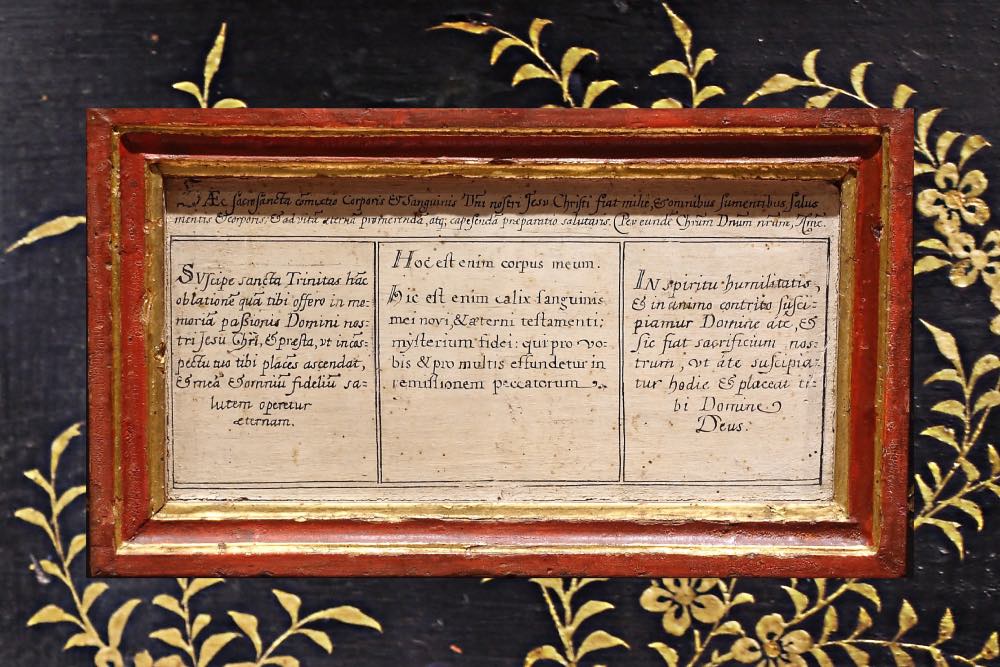 HÆc sacrosancta comistio Corporis & Sanguinis Dñi nostri Jesu Christi fiat mihi, & omnibus sumentibus salus
mentis & corporis, & ad vitã eternã promerendã, atq; capesendã preparatio salutaris. Per eundẽ Chrũm Dnũm nrũm, Amẽ.
SVscipe sancta Trinitas hãc
oblationẽ quã tibi offero in me=
moriã passionis Domini nos=
tri Jesu Chri, & presta, vt in cõs=
pectu tuo tibi placẽs ascendat,
& meã & omniũ fideliũ sa=
lutem operetur
æternam.
Hoc est enim corpus meum.
Hic est enim calix sanguinis
mei novi, & æterni testamenti:
mysterium fidei: qui pro vo=
bis & pro multis effundetur in
remissionem peccatorum
IN spiritu humilitatis,
& in animo contrito susci=
piamur Domine a te, &
sic fiat sacrificium nos=
trum, vt a te suscipia=
tur hodie & placeat ti=
bi Domine
Deus.